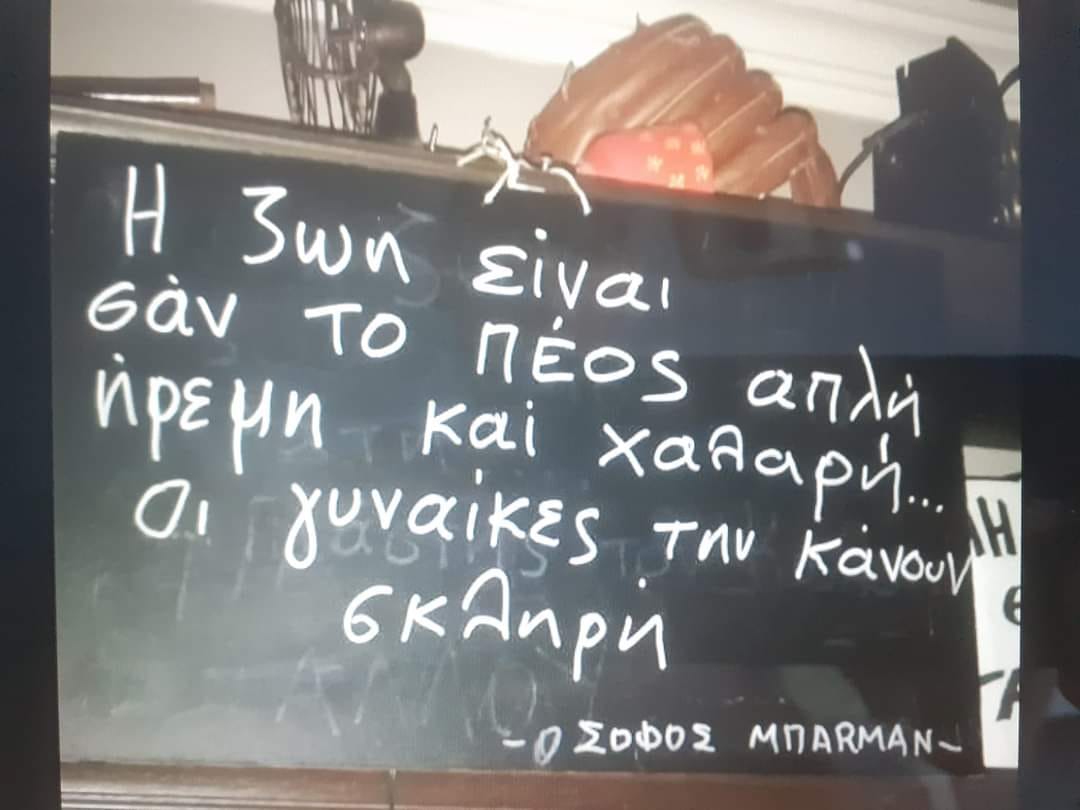 Η ζωη είναι
σὰν το πέος απλή
ήρεμη και χαλαρή...
Οι γυναίκες την κάνουν
σκληρή
- Ο ΣΟΦΟΣ ΜΠΑRΜΑΝ -